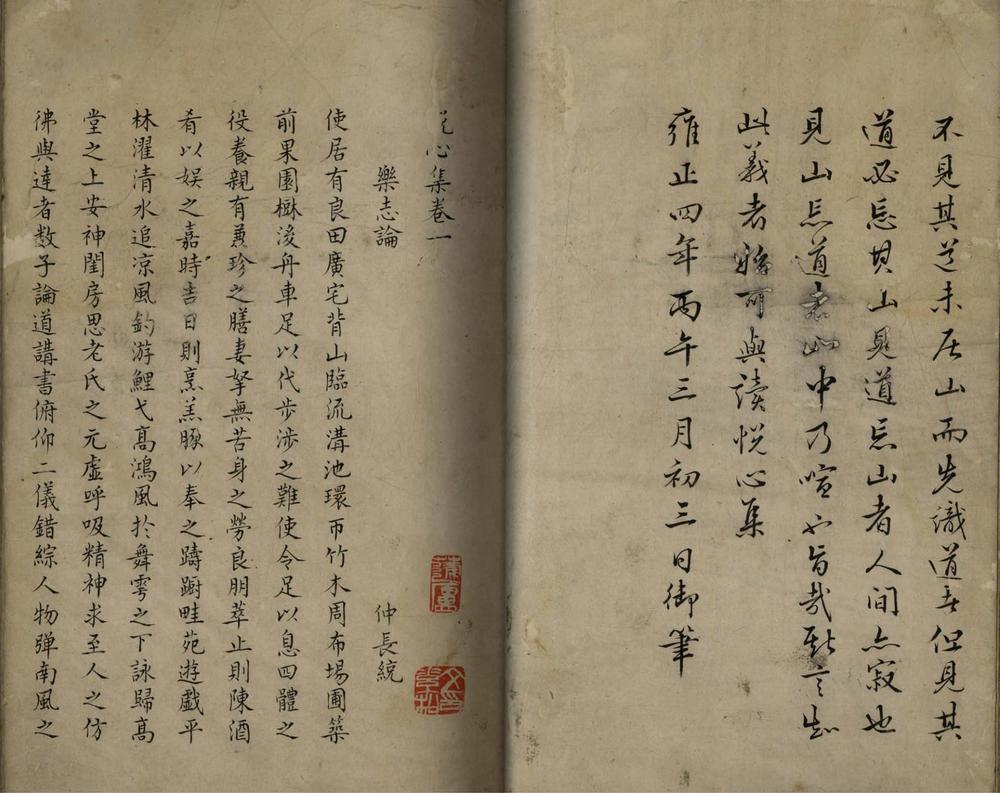 不見其道未居山而先識道者但見其
道必忘其山見道忘山者人間亦寂也
見山忘道者山中乃喧也旨哉斯言知
此義者始可與讀悅心集
雍正四年丙午三月初三日御筆
悅心集卷一
樂志論 仲長統
使居有良田廣宅背山臨流溝池環帀竹木周布場圃築
前果園樹後舟車足以代步涉之難使令足以息四體之
役養親有兼珍之膳妻孥無苦身之勞良朋萃止則陳酒
肴以娛之嘉時吉日則烹羔豚以奉之躊躕畦苑遊戲平
林濯清水追凉風釣游鯉弋高鴻風於舞雩之下詠歸高
堂之上安神閨房思老氏之元虛呼吸精神求至人之仿
彿與達者数子論道講書俯仰二儀錯綜人物弹南風之